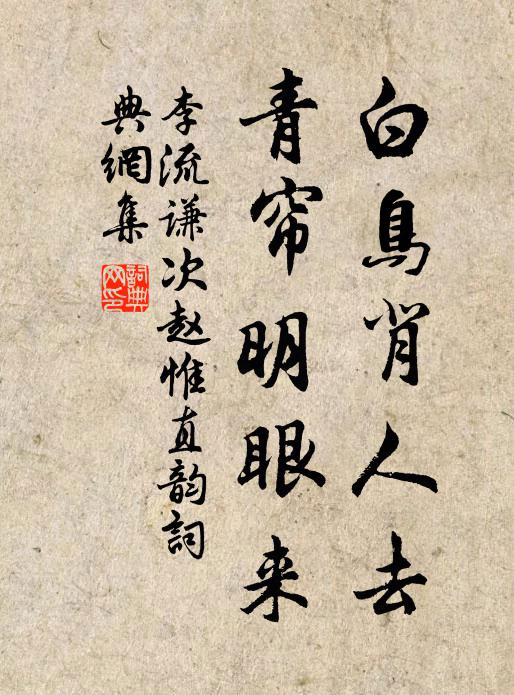 白鳥背人去
青帘明眼来
李流谦次赵惟直韵詞
典網集
詞典
网印